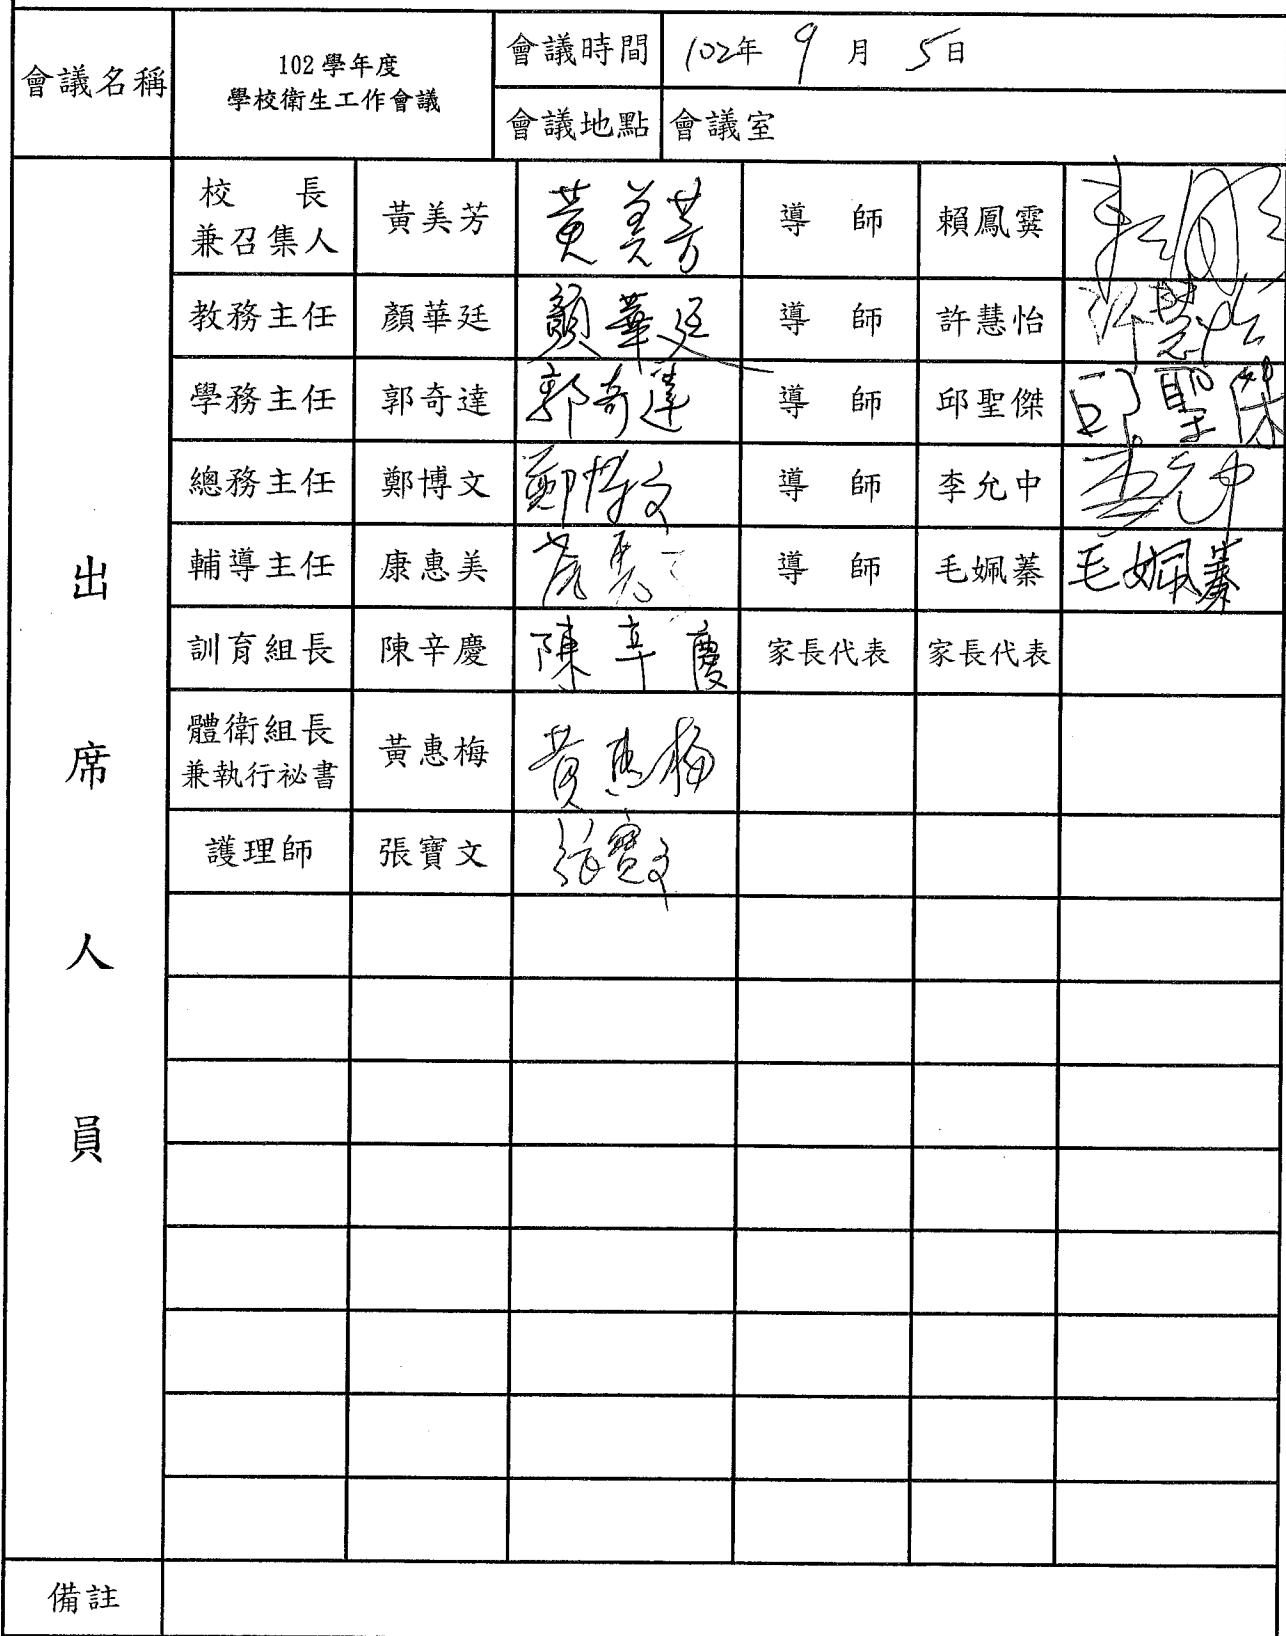 會議名稱
102學年度
學校衛生工作會議
會議時間
102年 9 月 5日
會議地點
會議室
出席人員
校 長
兼召集人
黃美芳 黃美芳 導 師 賴鳳霙
教務主任 顏華廷 顏華廷 導 師 許慧怡 許慧怡
學務主任 郭奇達 郭奇達 導 師 邱聖傑 邱聖傑
總務主任 鄭博文 鄭博文 導 師 李允中 李允中
輔導主任 康惠美 導 師 毛姵蓁 毛姵蓁
訓育組長 陳辛慶 陳辛慶 家長代表 家長代表
體衛組長
兼執行祕書
黃惠梅 黃惠梅
護理師 張寶文 張寶文
備註